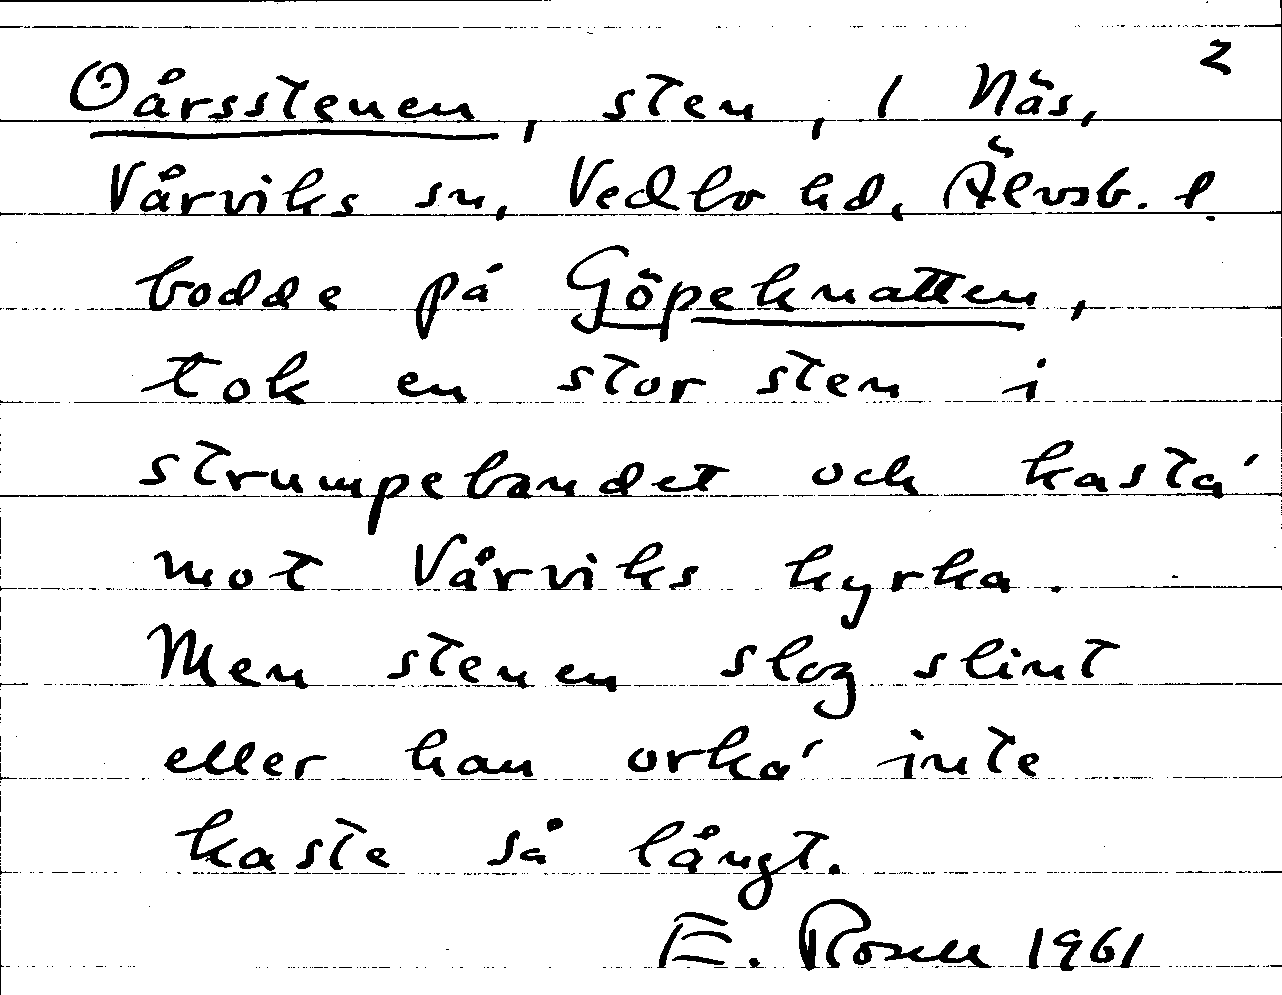 2
Oårsstenen, sten, i Näs,
Vårviks sn, Vedbo hd, Älvsb. l.
bodde på Göpeknatten,
tok en stor sten i
strumpebandet och kasta'
mot Vårviks kyrka.
Men stenen slog slint
eller han orka' inte
kaste så långt.
E. Rosell 1961